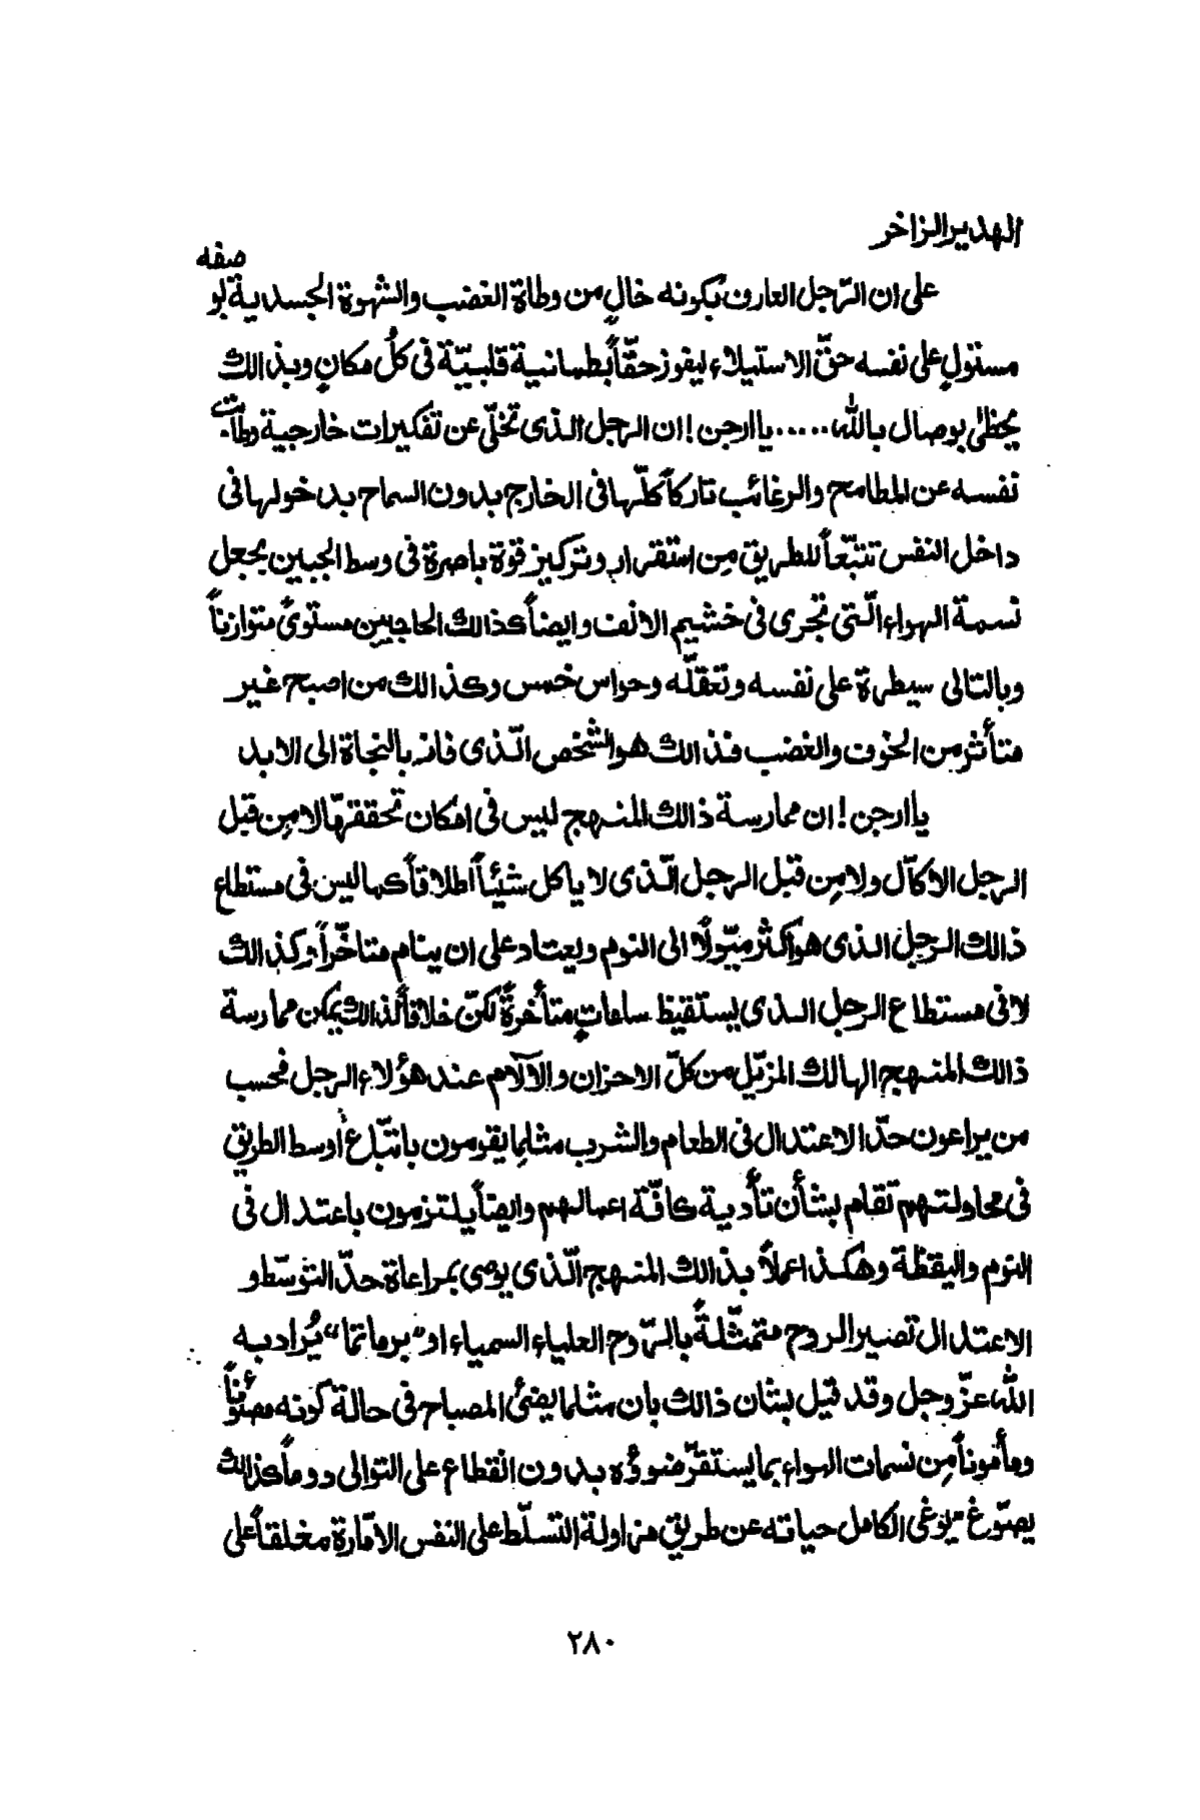 الهدير الزاخر
صفه
على ان الرّجل العارف بكونه خالٍ من وطاة الغضب والشهوة الجسدية بو
مستولٍ على نفسه حقّ الاستيلاء ليفوز حقّاً بطمانية قلبيّة فى كلّ مكانٍ وبذالك
يحظىٰ بوصال بالله ..... يا ارجن! ان الرجل الذى تخلّى عن تفكيرات خارجية وطآت
نفسه عن المطامح والرغائب تاركاً كلّها فى الخارج بدون السماح بدخولها فى
داخل النفس تتبّعاً للطريق مِن استقرار وتركيز قوة باصرة فى وسط الجبين بجعل
نسمة الهواء الّتى تجرى فى خشيم الانف وايضاً كذالك الحاجبين مستوىً متوازناً
وبالتالى سيطرة على نفسه وتعقلّه وحواس خمس وكذالك من اصبح غير
متأثر من الخوف والغضب فذالك هو الشخص الّذى فاز بالنجاة الى الابد
يا ارجن! ان ممارسة ذالك المنهج ليس فى امكان تحققهّا لامِن قبل
الرجل الاكّال ولامِن قبل الرجل الّذى لا ياكل شيئاً اطلاقاً كما ليس فى مستطاع
ذالك الرجل الذى هو اكثر ميّولاً الى النوم ويعتاد على ان ينام متاخّراً وكذالك
لافى مستطاع الرجل الذى يستقيظ ساعاتٍ متأخرةً لكنّ خلافاً لذالك يمكن ممارسة
ذالك المنهج الهالك المزيّل من كلّ الاحزان والآلام عند هؤلاء الرجل فحسب
من يراعون حدّ الاعتدال فى الطعام والشرب مثلما يقومون باتبّاع أوسط الطريق
فى محاولتهم تقام بشأن تأدية كافّة اعمالهم وايضاً يلتزمون باعتدال فى
النوم واليقظة وهٰكذا عملاً بذالك المنهج الّذى يوصى بمراعاة حدّ التوسّط و
الاعتدال تصير الروح متمثّلةً بالرّوح العلياء السمياء او "برماتما" يُراد به
الله عزّ وجل وقد قيل بشان ذالك بان مثلما يضئ المصباح فى حالة كونه مصئوناً
ومأموناً مِن نسمات الهواء بما يستقرّ ضوؤه بدون انقطاع على التوالى دوماً كذالك
يصوّغ يوغى الكامل حياته عن طريق مزاولة التسلّط على النفس الامّارة مغلقاً على
٢٨٠